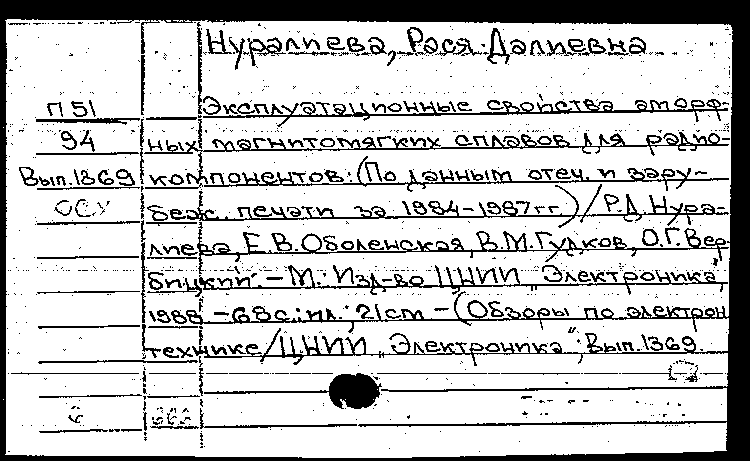 Нуралиева, Рася Далиевна
П51 Эксплуатационные свойства аморф-
94 ных магнитомягких сплавов для радио-
Вып.1369 компонентов: (По данным отеч. и зару-
беж. печати за 1984-1987гг.)/Р.Д. Нура-
лиева, Е.В. Оболенская, В.М. Гудков, О.Г. Вер-
бицкий. - М.: Изд-во ЦНИИ "Электроника",
1988. - 68с.: ил.; 21см - (Обзоры по электрон.
технике/ЦНИИ "Электроника"; Вып.1369.